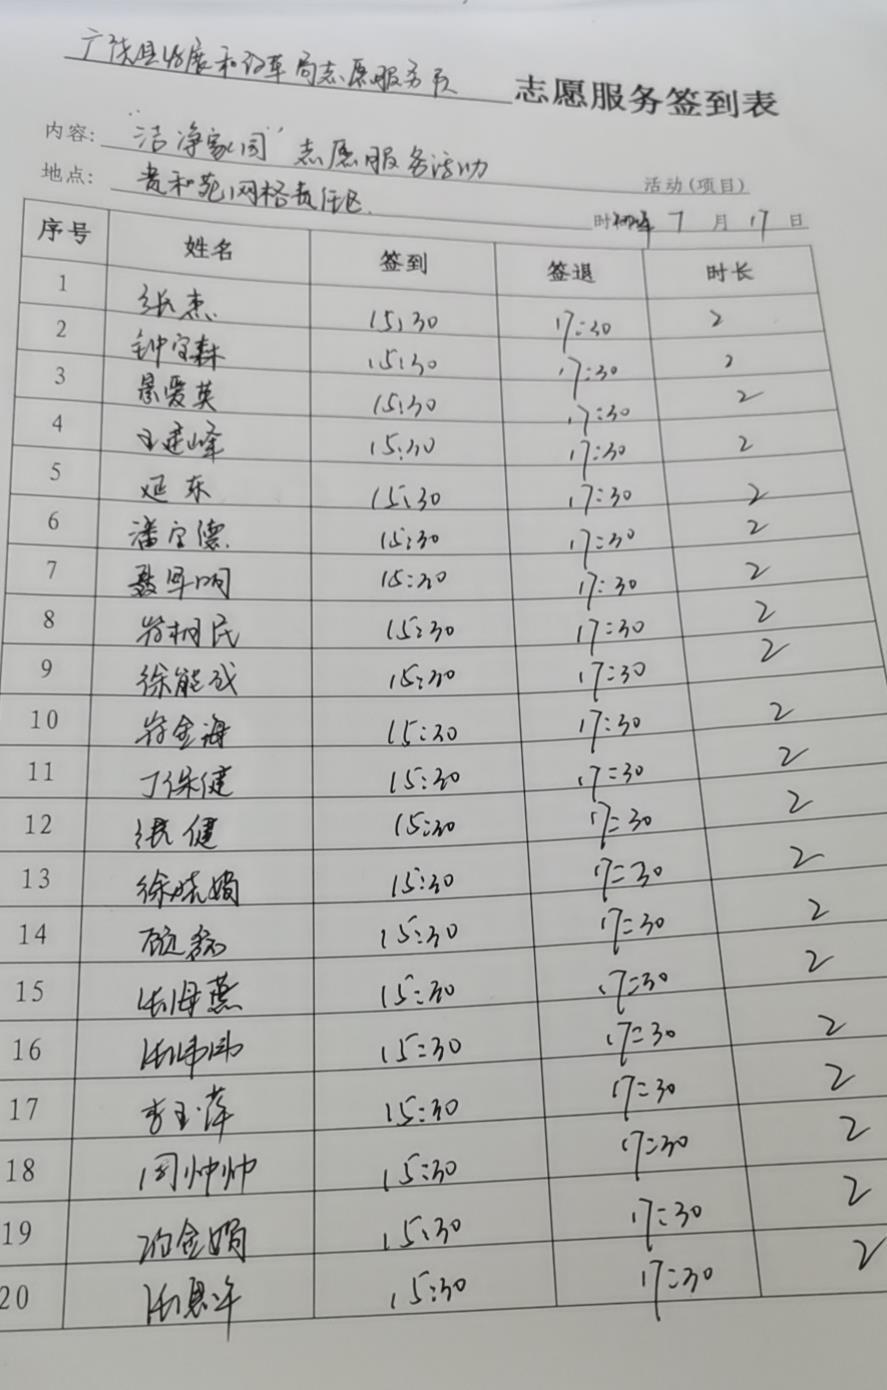 广饶县发展和改革局志愿服务队 志愿服务签到表
内容: "洁净家园"志愿服务活动 活动(项目)
地点: 贵和苑网格责任区 时间 7 月 17 日
序号 姓名 签到 签退 时长
1 张杰 15:30 17:30 2
2 钟宝森 15:30 17:30 2
3 景爱英 15:30 17:30 2
4 王建峰 15:30 17:30 2
5 延东 15:30 17:30 2
6 潘宝德 15:30 17:30 2
7 聂早响 15:30 17:30 2
8 岩桐民 15:30 17:30 2
9 徐能成 15:30 17:30 2
10 金海 15:30 17:30 2
11 丁保健 15:30 17:30 2
12 张健 15:30 17:30 2
13 徐晓娟 15:30 17:30 2
14 15:30 17:30 2
15 张海燕 15:30 17:30 2
16 张伟伟 15:30 17:30 2
17 李玉萍 15:30 17:30 2
18 周帅帅 15:30 17:30 2
19 金娟 15:30 17:30 2
20 张恩泽 15:30 17:30 2